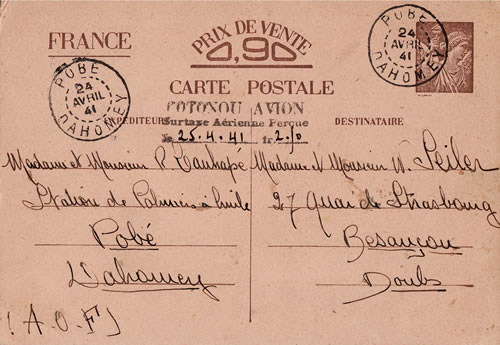 FRANCE
PRIX DE VENTE
0,90
CARTE POSTALE
POBE
24
AVRIL
41
DAHOMEY
POBE
24
AVRIL
41
DAHOMEY
COTONOU AVION
Surtaxe Aérienne Perçue
25.4.41 fr
EXPÉDITEUR
DESTINATAIRE
Madame et Monsieur P.
Station de Palmiers à huile
Pobé
Dahomey
(A.O.F)
Madame et Monsieur W. Seiler
27 Quai de Strasbourg
Besançon
Doubs